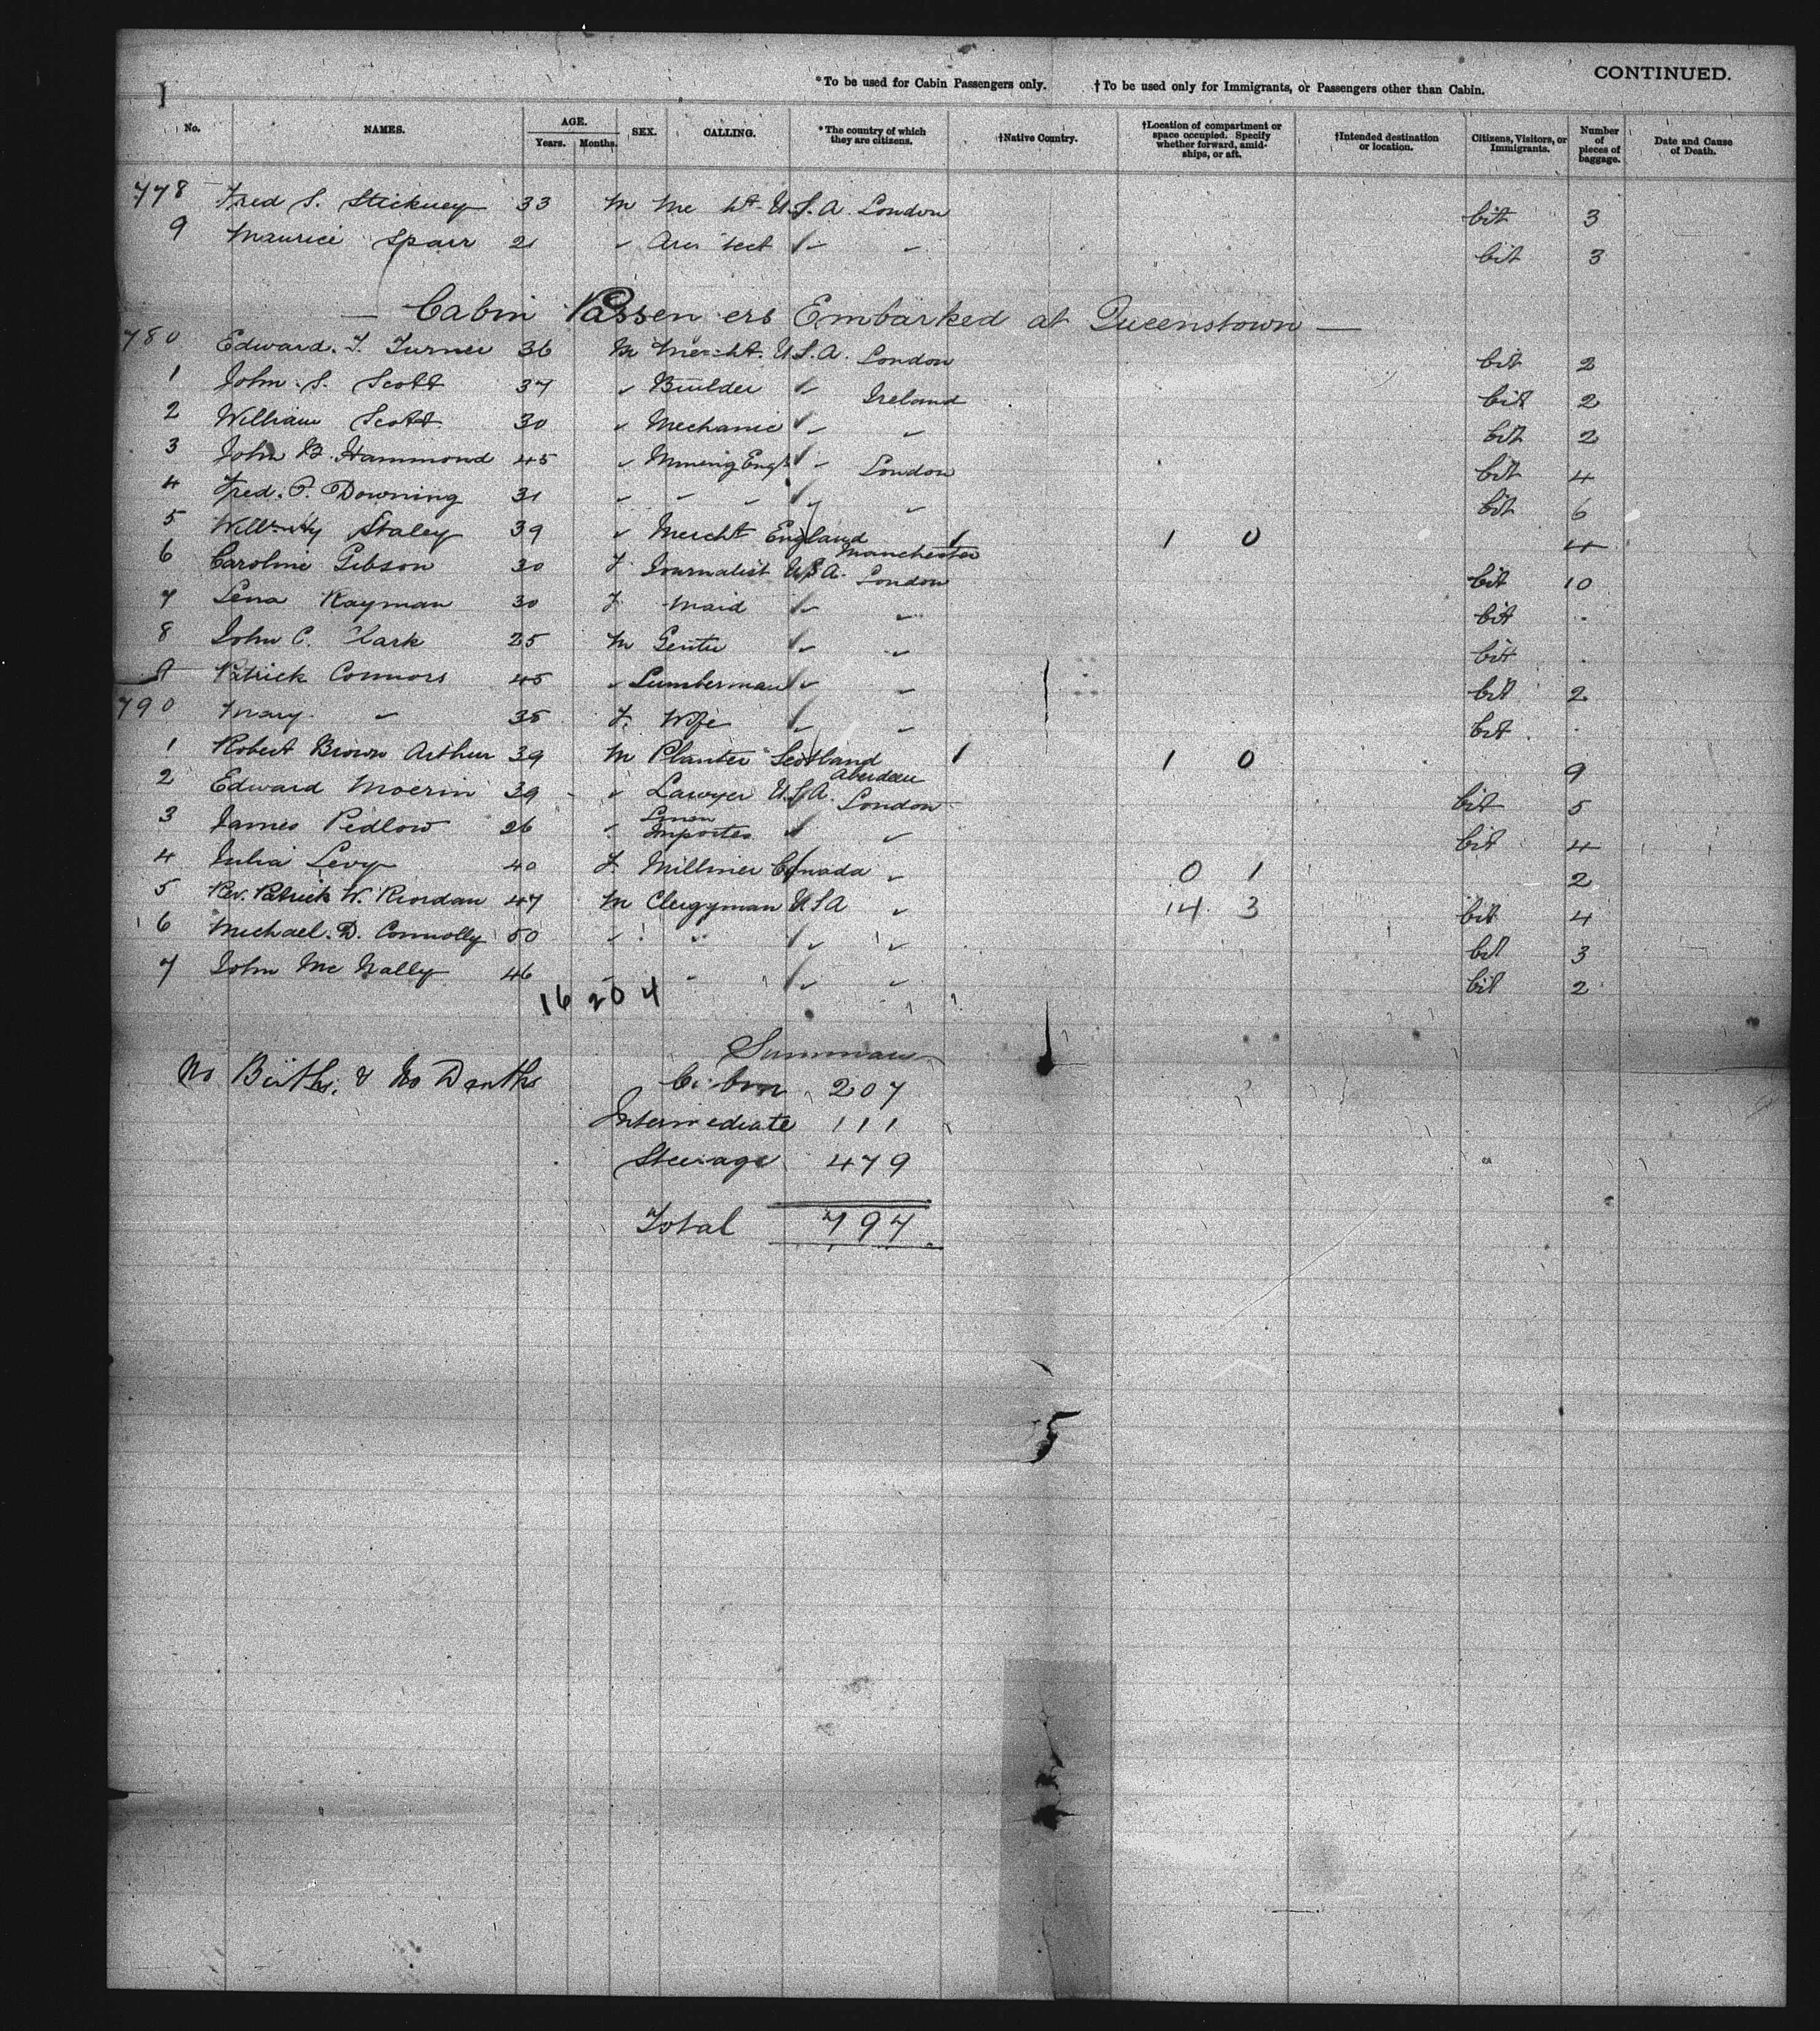 CONTINUED.
*To be used for Cabin Passengers only. †To be used only for Immigrants, or Passengers other than Cabin.
No. NAMES. AGE. Years. Months. SEX. CALLING. *The country of which they are citizens. †Native Country. †Location of compartment or space occupied. Specify whether forward, amidships, or aft. †Intended destination or location. Citizens, Visitors, or Immigrants. Number of pieces of baggage. Date and Cause of Death.
778 Fred S. Stickney 33 M U.S.A. London Cit 3
9 Maurice Sparr 21 Cit 3
— Cabin Passen ers Embarked at Queenstown —
780 Edward. T. Turner 36 M Mercht. U.S.A. London Cit 2
1 John. S. Scott 37 Builder Ireland Cit 2
2 William Scott 30 Mechanic Cit 2
3 John B. Hammond 45 Mining Engr London Cit 4
4 Fred. P. Downing 31 Cit 6
5 Staley 39 Mercht England Manchester 1 1 0 4
6 Caroline Gibson 30 F Journalist U.S.A. London Cit 10
7 Lena Kayman 30 F Maid Cit
8 John C. Clark 25 M Gentn Cit
9 Patrick Connors 45 Lumberman Cit 2
790 Mary 35 F. Wife Cit
1 Robert Brown Arthur 39 M Planter Scotland Aberdeen 1 1 0 9
2 Edward Moerin 39 Lawyer U.S.A. London Cit 5
3 James Pedlow 26 Linen Importer Cit 4
4 Julia Levy 40 F Milliner Canada 0 1 2
5 Rev. Patrick W. Riordan 47 M Clergyman USA 14. 3 Cit 4
6 Michael. D. Connolly 50 Cit 3
7 John Mc Nally 46 Cit 2
16 20 4
Summary
No Births, & No Deaths Cabin 207
Intermediate 111
Steerage 479
Total 797